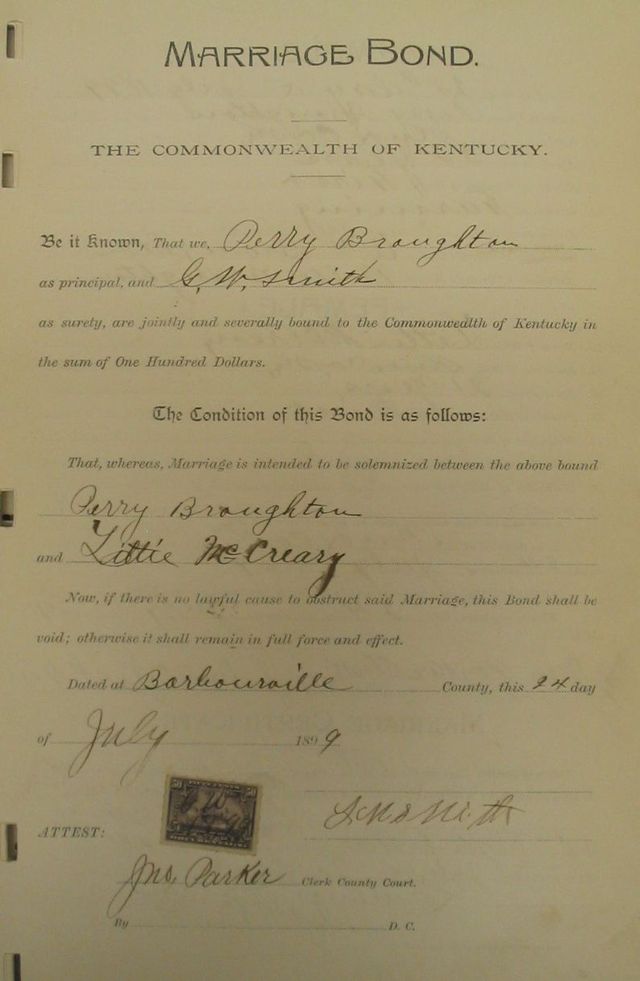 MARRIAGE BOND.
THE COMMONWEALTH OF KENTUCKY.
Be it Known, That we, Perry Broughton
as principal, and G. W. Smith
as surety, are jointly and severally bound to the Commonwealth of Kentucky in
the sum of One Hundred Dollars.
The Condition of this Bond is as follows:
That, whereas, Marriage is intended to be solemnized between the above bound
Perry Broughton
and Littie McCreary
Now, if there is no lawful cause to obstruct said Marriage, this Bond shall be
void; otherwise it shall remain in full force and effect.
Dated at Barbourville County, this 24 day
of July 1899
50 50
ATTEST:
Jno. Parker Clerk County Court.
By D. C.